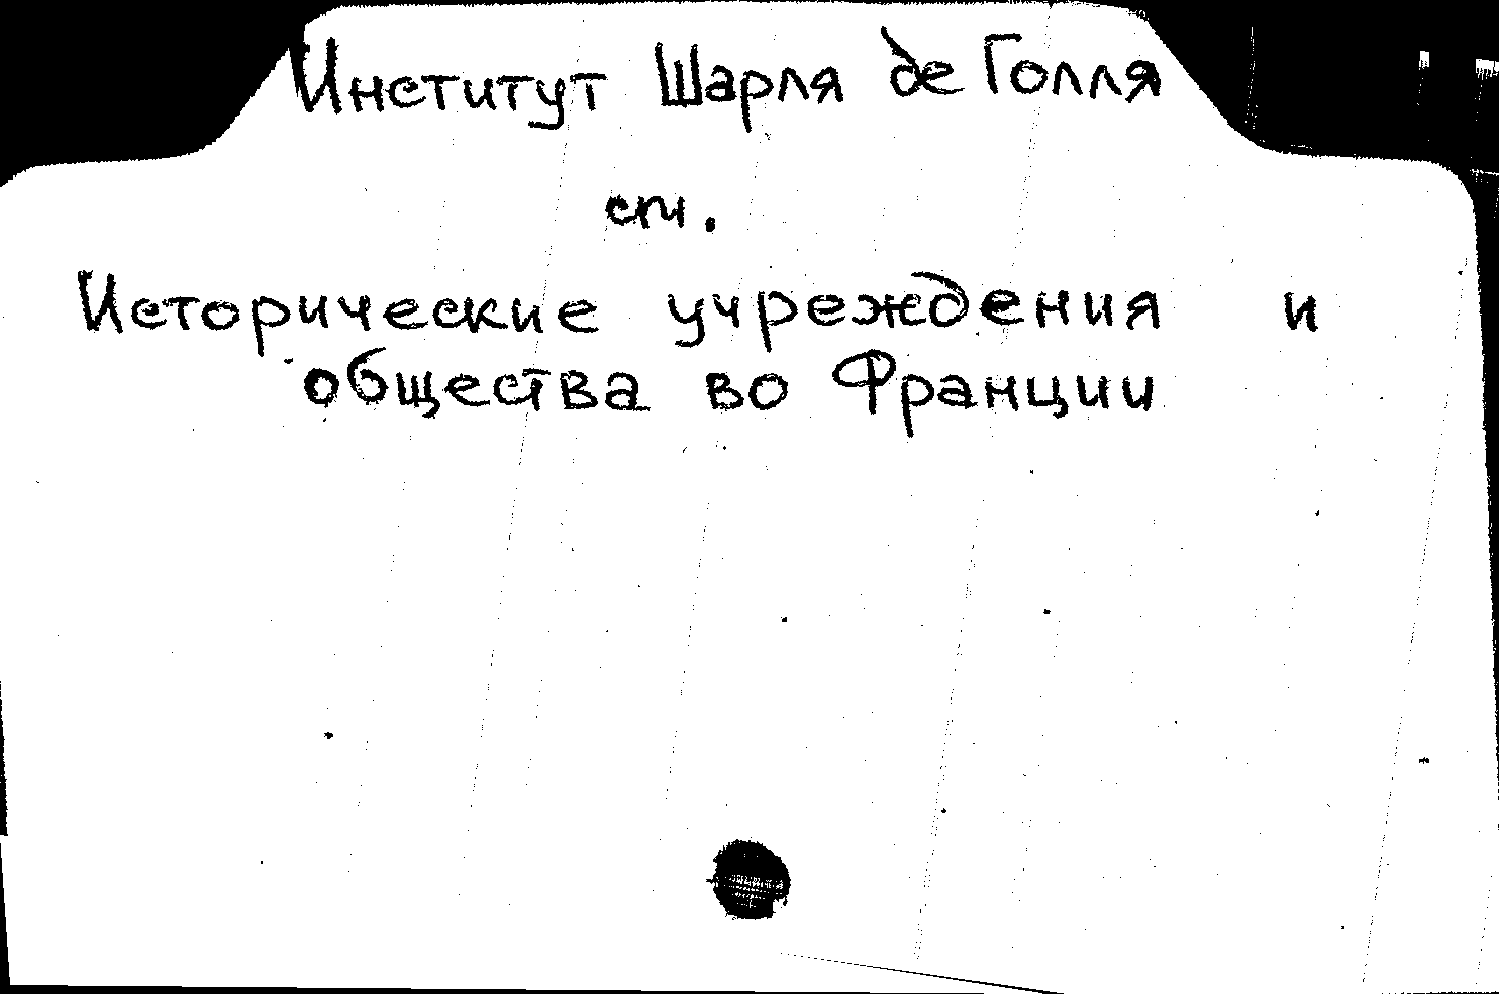 Институт Шарля де Голля
см.
Исторические учреждения и
общества во Франции